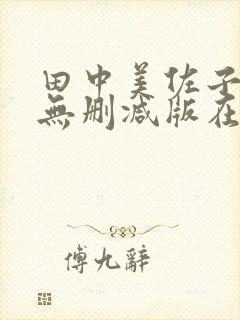 田中美佐子
無删减版在
傅九辭